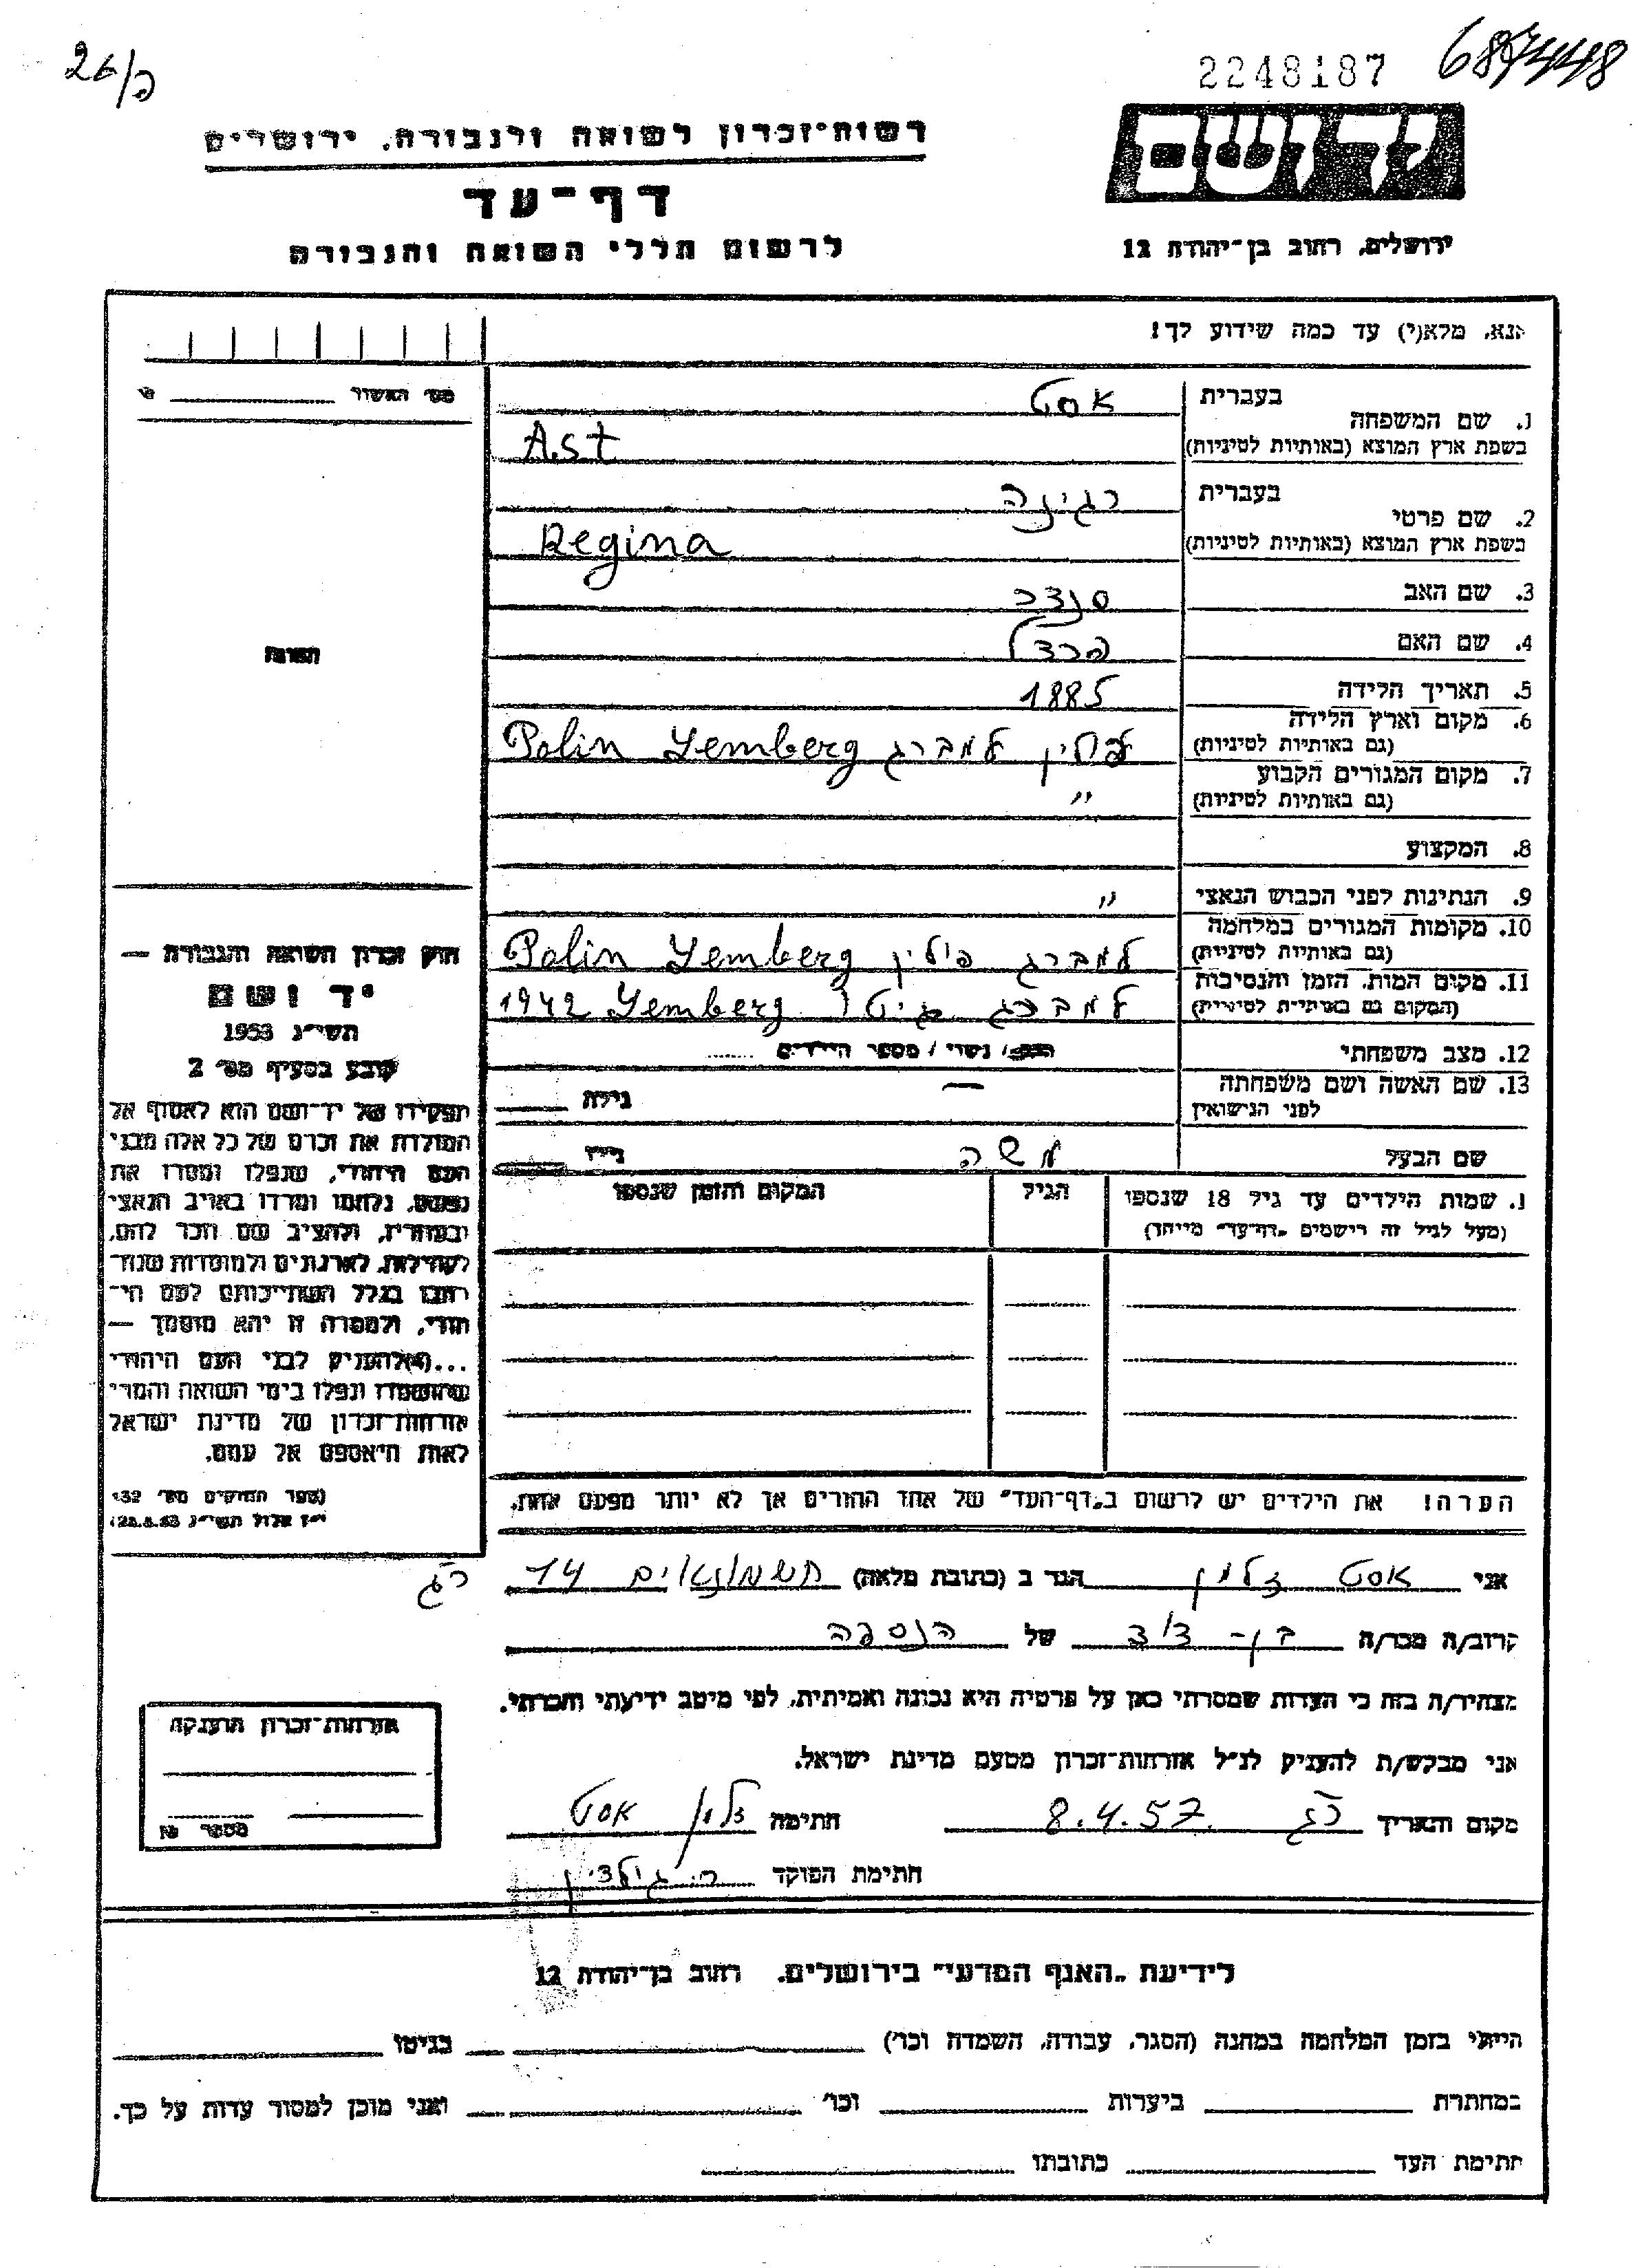 2248187
רשות־זכרון לשואה ולגבורה, ירושלים
דף־עד
לרשום חללי השואה והגבורה
יד ושם
ירושלים, רחוב בן־יהודה 12
אנא, מלא(י) עד כמה שידוע לך!
מס׳ האשור
1. שם המשפחה בעברית אסט
בשפת ארץ המוצא (באותיות לטיניות) Ast
2. שם פרטי בעברית רגינה
בשפת ארץ המוצא (באותיות לטיניות) Regina
3. שם האב סנדר
4. שם האם פרדל
5. תאריך הלידה 1885
6. מקום וארץ הלידה (גם באותיות לטיניות) פולין למברג Polin Lemberg
7. מקום המגורים הקבוע (גם באותיות לטיניות) "
8. המקצוע
9. הנתינות לפני הכבוש הנאצי "
10. מקומות המגורים במלחמה (גם באותיות לטיניות) למברג פולין Polin Lemberg
11. מקום המות, הזמן והנסיבות (המקום גם באותיות לטיניות) למברג גיטו Lemberg 1942
12. מצב משפחתי רווק / נשוי / מספר הילדים
13. שם האשה ושם משפחתה לפני הנישואין — גילה
שם הבעל משה גילו
שמות הילדים עד גיל 18 שנספו
(מעל לגיל זה רישמים "דף־עד" מייחד)
הגיל
המקום והזמן שנספו
הערה! את הילדים יש לרשום ב"דף־העד" של אחד ההורים אך לא יותר מפעם אחת.
התמונה
חוק זכרון השואה והגבורה —
יד ושם
תשי״ג 1953
קובע בסעיף מס׳ 2
תפקידו של יד־ושם הוא לאסוף אל
המולדת את זכרם של כל אלה מבני
העם היהודי, שנפלו ומסרו את
נפשם, נלחמו ומרדו באויב הנאצי
ובעוזריו, ולהציב שם וזכר להם,
לקהילות, לארגונים ולמוסדות שנח־
רבו בגלל השתייכותם לעם הי־
הודי, ולמטרה זו יהא מוסמך —
...(4) להעניק לבני העם היהודי
שהושמדו ונפלו בימי השואה והמרי
אזרחות־זכרון של מדינת ישראל
לאות היאספם אל עמם.
(ספר החוקים מס׳ 132,
י״ז אלול תשי״ג 28.8.53)
אני אסט זלמן הגר ב (כתובת מלאה) חשמונאים 14
רג
קרוב/ה מכר/ה בן־דוד של הנספה
מצהיר/ה בזה כי העדות שמסרתי כאן על פרטיה היא נכונה ואמיתית, לפי מיטב ידיעתי והכרתי.
אני מבקש/ת להעניק לנ״ל אזרחות־זכרון מטעם מדינת ישראל.
מקום ותאריך רג 8.4.57 חתימה זלמן אסט
חתימת הפוקד
אזרחות־זכרון הוענקה
מספר
לידיעת "האגף המדעי" בירושלים, רחוב בן־יהודה 12
הייתי בזמן המלחמה במחנה (הסגר, עבודה, השמדה וכו׳) בגיטו
במחתרת ביערות וכו׳ ואני מוכן למסור עדות על כך.
חתימת העד כתובתו